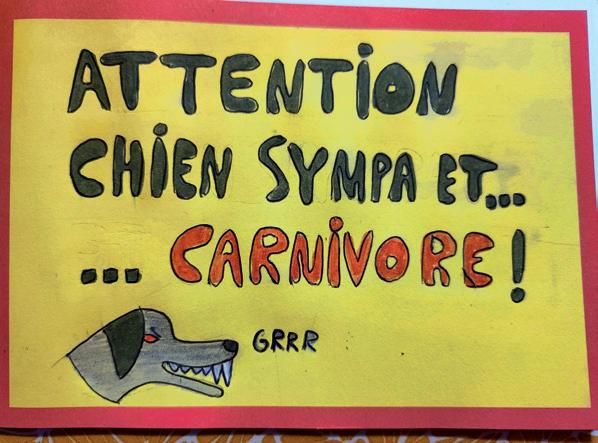 ATTENTION
CHIEN SYMPA ET...
... CARNIVORE !
GRRR